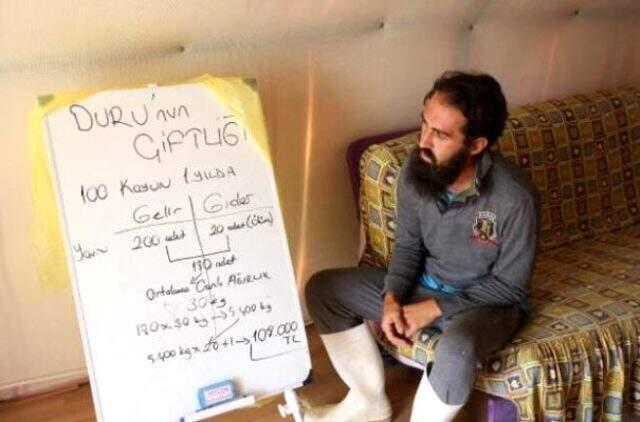 DURU'nun
ÇİFTLİĞİ
100 Koyun 1 YILDA
Gelir Gider
Yavru 200 adet 20 adet (Ölüm)
180 adet
Ortalama Canlı AĞIRLIK
30 kg
180 x 30 kg → 5.400 kg
5.400 kg x 20 tl → 108.000
TL